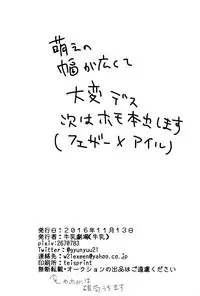 萌えの
幅が広くて
大変デス
次はホモ本出します
(フェザー×アイル)
発行日：2016年11月13日
発行者：牛乳劇場(牛乳)
pixiv：2670783
Twitter：@gyunyuu21
連絡先：w2lexeen@yahoo.co.jp
印刷所：teisprint
無断転載・オークションの出品はご遠慮ください